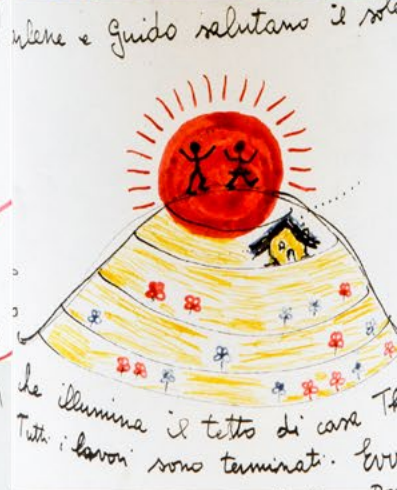 e Guido salutano il sole
che illumina il tetto di casa
Tutti i lavori sono terminati.